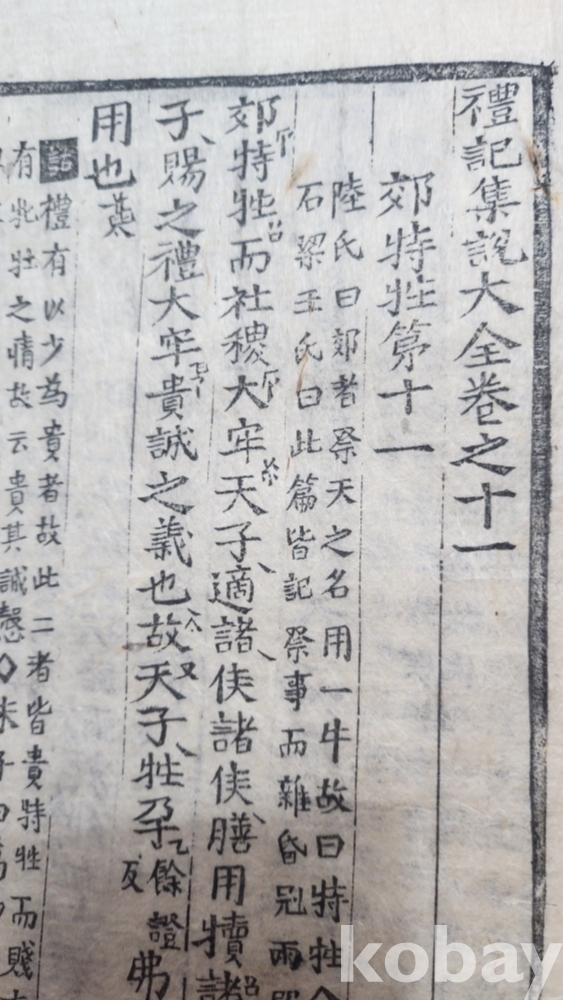 禮記集說大全卷之十一
郊特牲第十一
陸氏曰郊者祭天之名用一牛故曰特牲○
石梁王氏曰此篇皆記祭事而雜昏冠兩
郊特牲而社稷大牢天子適諸侯諸侯膳用犢諸
子賜之禮大牢貴誠之義也故天子牲孕餘證反弗
用也
禮有以少為貴者故此二者皆貴特牲而賤
有牝牡之情故云貴其誠慤○朱子曰
kobay